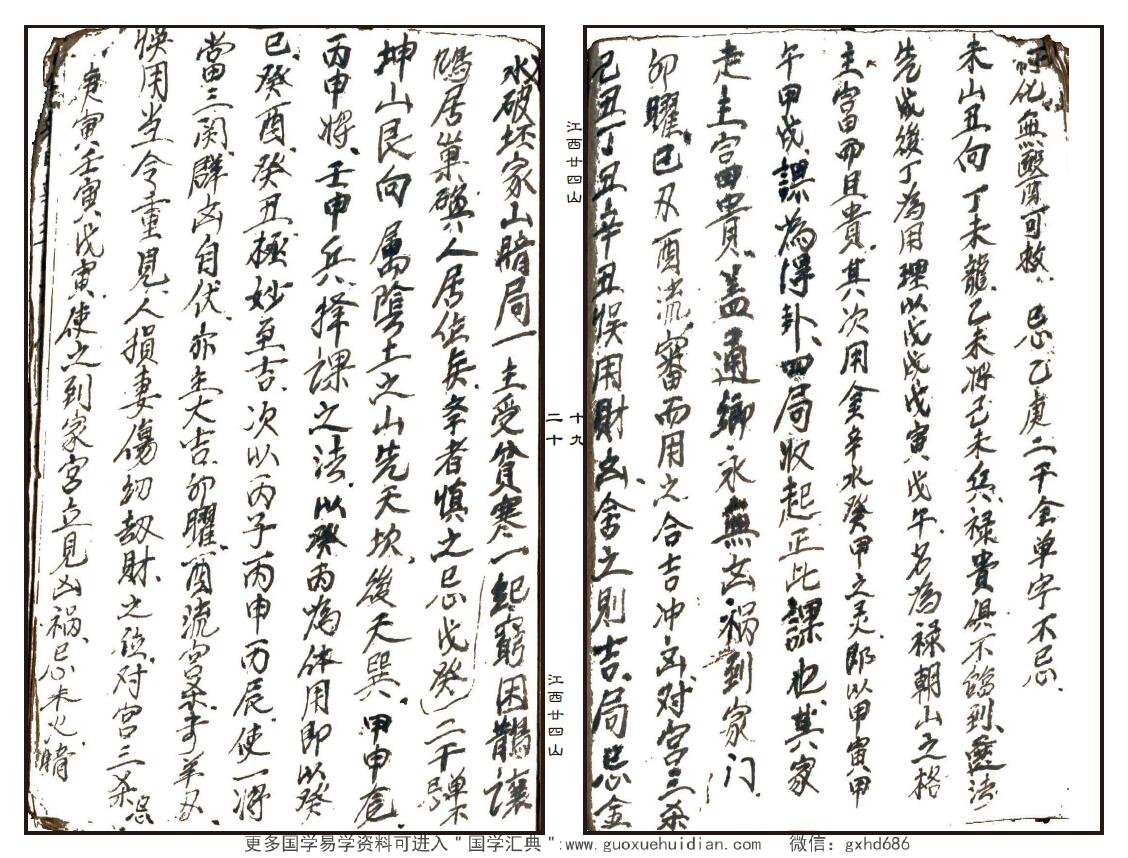 时化無醫可救 忌乙庚二干全单字不忌
未山丑向丁未龍乙未将己未兵禄貴俱不臨到選法
先戊後丁為用理以戊戌戊寅戊午名為禄朝山之格
主富而且貴其次用金辛水癸甲之灵郎以甲寅甲
午甲戌課為得卦四局收起正此課也其家
走主宫四貴盖通鄉永無玄祸到家门
卯曜巳刃酉流審而用之合吉冲凶对宫三杀
己丑丁丑辛丑悮用財凶舍之則吉局忌金
水破坯家山暗局一主受贫寒一起窮困鵲讓
鳩居巢礖人居位矣孝者慎之忌戊癸二干
坤山艮向屬陰土之山先天坎後天巽甲申龙
丙申将壬申兵擇課之法以癸丙為体用即以癸
巳癸酉癸丑極妙至吉次以丙子丙申丙辰使一将
當三関群凶自伏亦主大吉卯曜酉流宫羊刃
悮用当今重見人損妻傷幼劫財之位对宫三杀忌
庚寅壬寅戊寅使之到家宫立見凶祸忌木火暗
江西廿四山
十九
二十
江西廿四山
更多国学易学资料可进入＂国学汇典＂:www.guoxuehuidian.com 微信：gxhd686